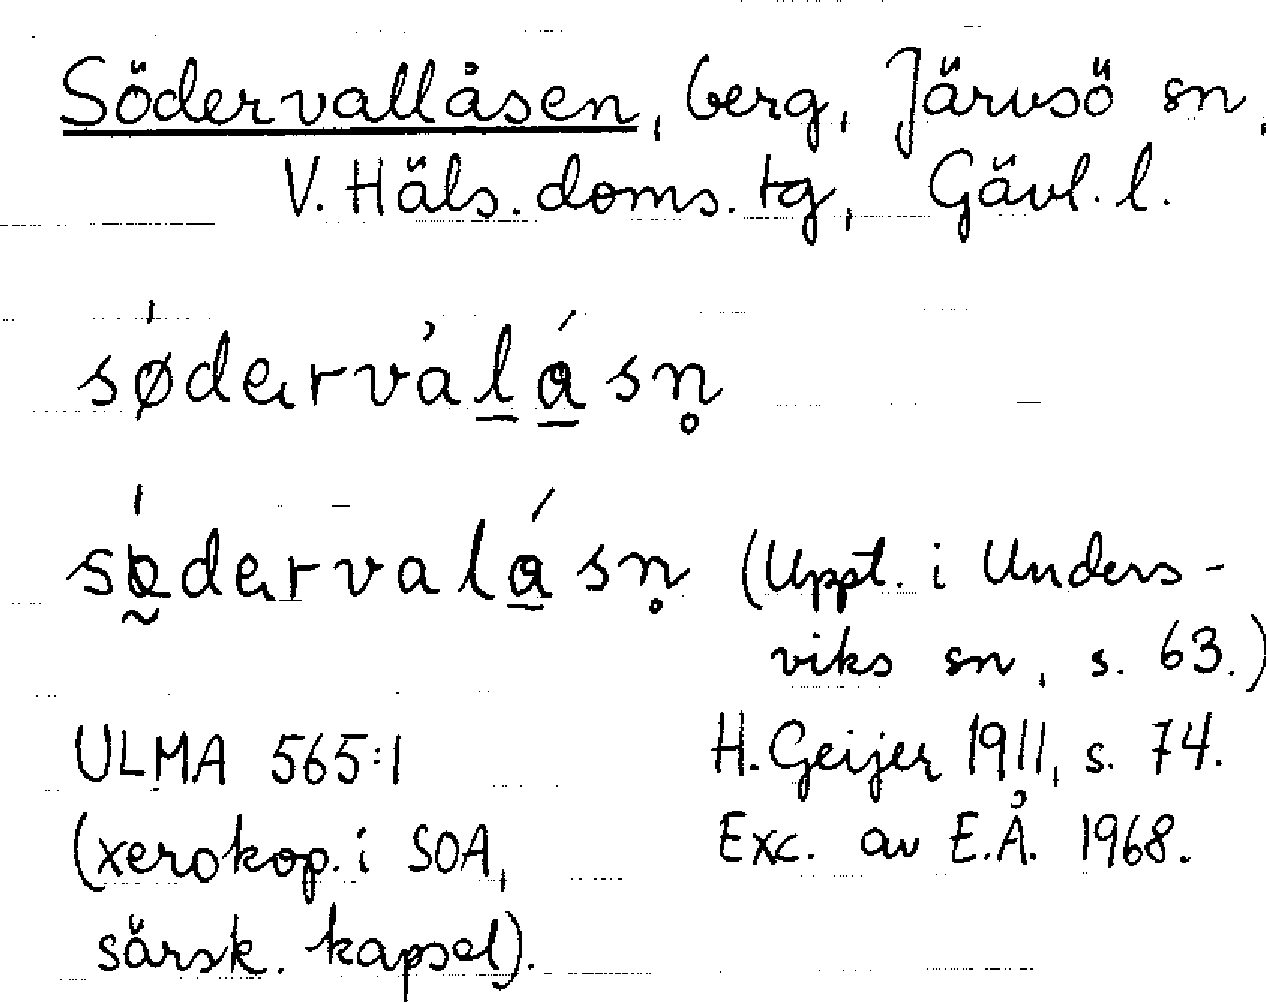 Södervallåsen, berg, Järvsö sn,
V. Häls. doms. tg, Gävl. l.
(Uppt. i Unders-
viks sn, s. 63.)
ULMA 565:1 H. Geijer 1911, s. 74.
(xerokop. i SOA, Exc. av E.Å. 1968.
särsk. kapsel).